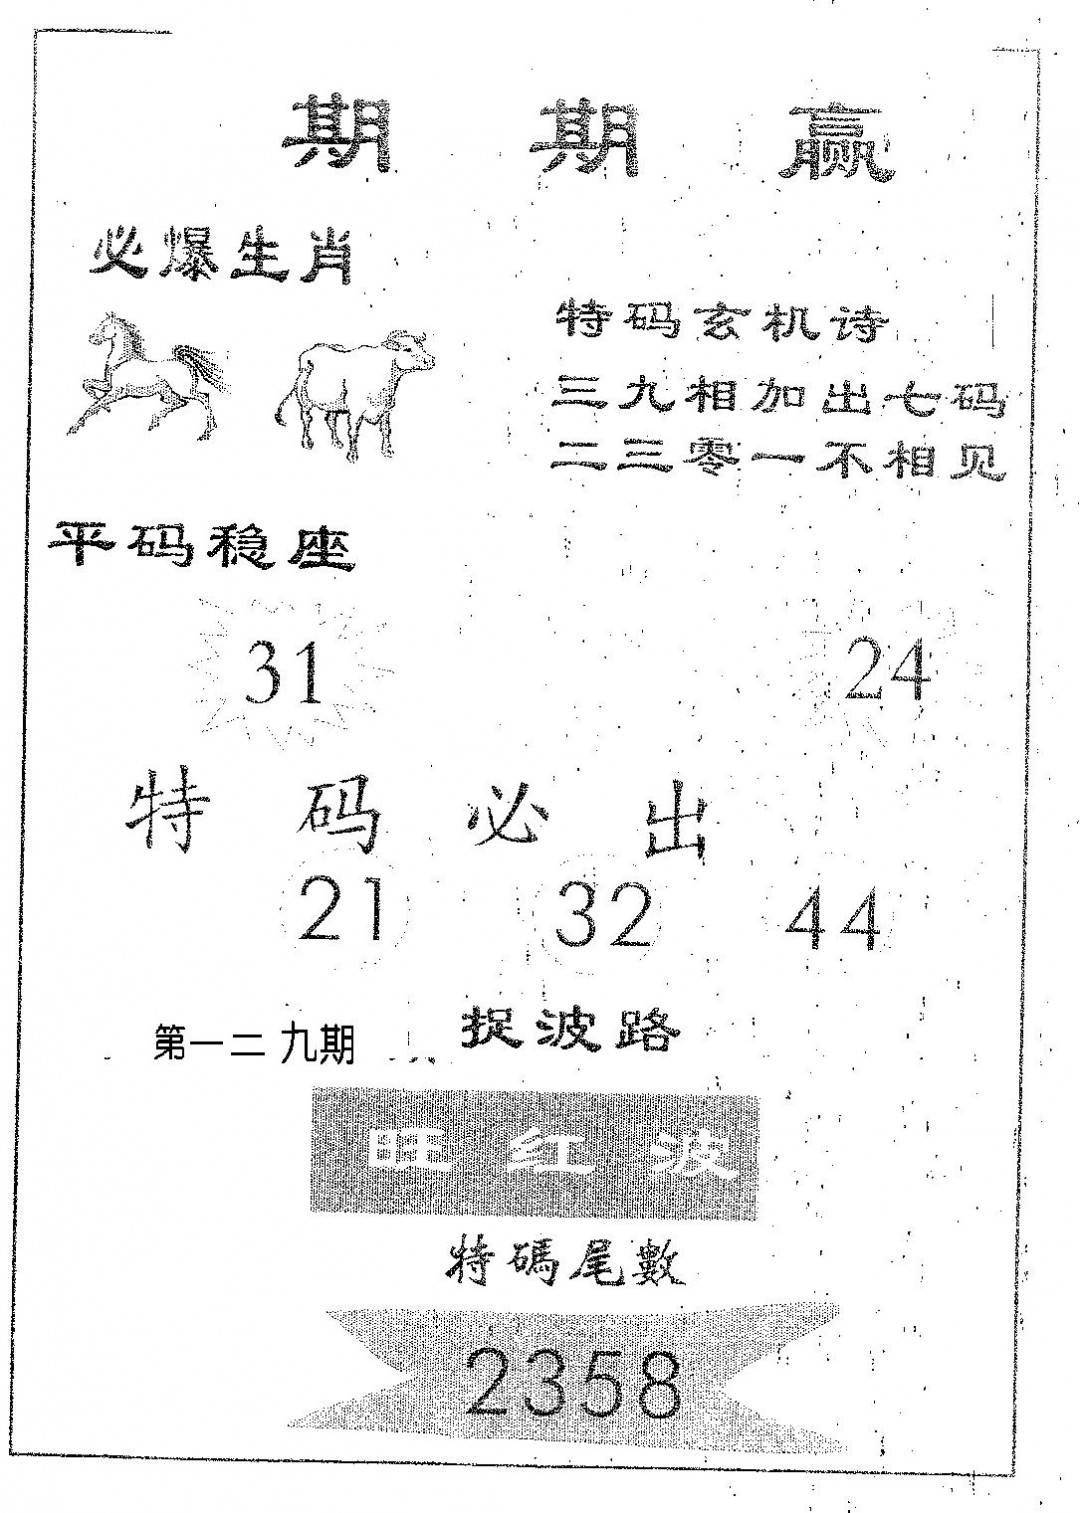 期期赢
必爆生肖
特码玄机诗
三九相加出七码
二三零一不相见
平码稳座
31 24
特码必出
21 32 44
第一二九期
捉波路
旺红波
特碼尾數
2358